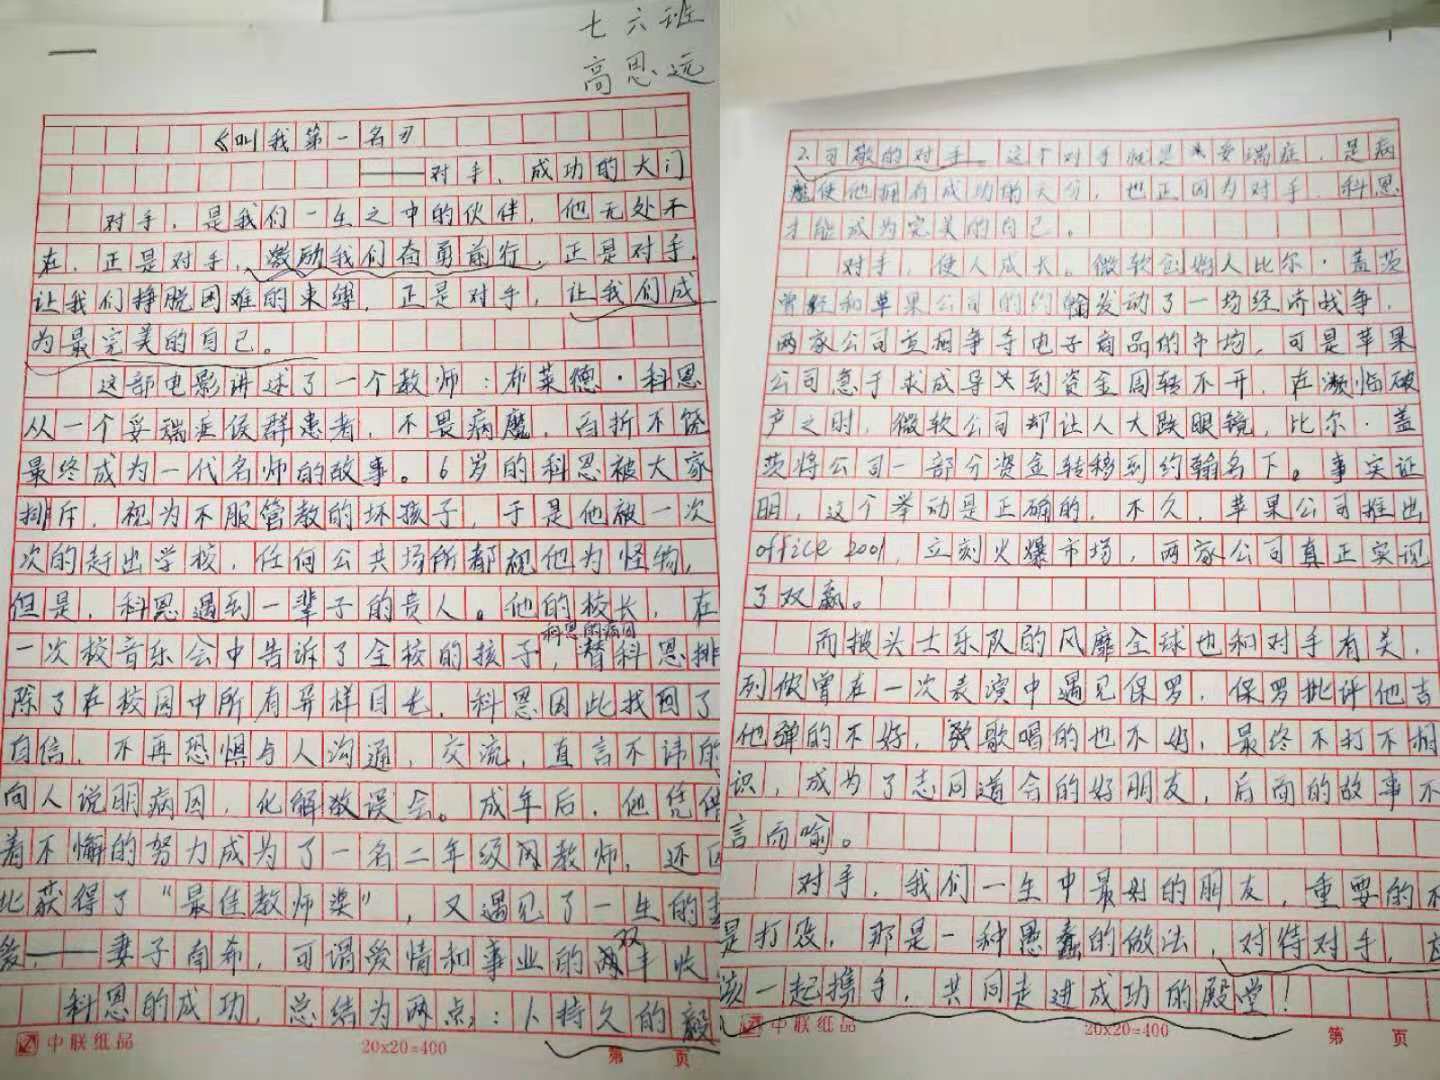 七六班
高恩远
《叫我第一名》
——对手,成功的大门
对手,是我们一生之中的伙伴,他无处不
在,正是对手,激励我们奋勇前行,正是对手,
让我们挣脱困难的束缚,正是对手,让我们成
为最完美的自己。
这部电影讲述了一个教师:布莱德·科恩
从一个妥瑞症候群患者,不畏病魔,百折不饶
最终成为一代名师的故事。6岁的科恩被大家
排斥,视为不服管教的坏孩子,于是他被一次
次的赶出学校,任何公共场所都视他为怪物,
但是,科恩遇到一辈子的贵人。他的校长,在
科恩的病因
一次校音乐会中告诉了全校的孩子,替科恩排
除了在校园中所有异样目光,科恩因此找回了
自信,不再恐惧与人沟通,交流,直言不讳的
向人说明病因,化解数误会。成年后,他凭借
着不懈的努力成为了一名二年级教师,还因
此获得了“最佳教师奖”,又遇见了一生的
——妻子南希,可谓爱情和事业的双丰收
科恩的成功,总结为两点:1.持久的毅
中联纸品
20x20=400
第 页
2.可敬的对手。这个对手就是妥瑞症,是病
魔使他拥有成功的天分,也正因为对手,科恩
才能成为完美的自己。
对手,使人成长。微软创始人比尔·盖茨
曾经和苹果公司的约翰发动了一场经济战争,
两家公司互相争夺电子商品的市场,可是苹果
公司急于求成导致到资金周转不开,在濒临破
产之时,微软公司却让人大跌眼镜,比尔·盖
茨将公司一部分资金转移到约翰名下。事实证
明,这个举动是正确的,不久,苹果公司推出
office 2001,立刻火爆市场,两家公司真正实现
了双赢。
而披头士乐队的风靡全球也和对手有关,
列侬曾在一次表演中遇见保罗,保罗批评他吉
他弹的不好,歌唱的也不好,最终不打不相
识,成为了志同道合的好朋友,后面的故事不
言而喻。
对手,我们一生中最好的朋友,重要的不
是打败,那是一种愚蠢的做法,对待对手,应
该一起携手,共同走进成功的殿堂!
中联纸品
20x20=400
第 页